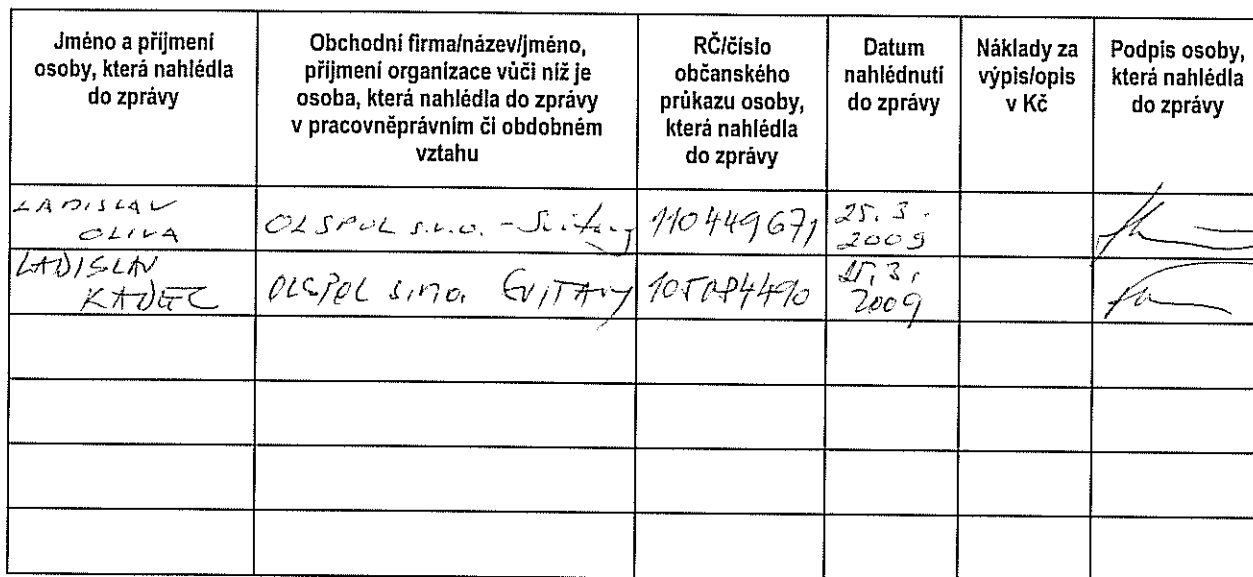 Jméno a příjmení
osoby, která nahlédla
do zprávy
Obchodní firma/název/jméno,
příjmení organizace vůči níž je
osoba, která nahlédla do zprávy
v pracovněprávním či obdobném
vztahu
RČ/číslo
občanského
průkazu osoby,
která nahlédla
do zprávy
Datum
nahlédnutí
do zprávy
Náklady za
výpis/opis
v Kč
Podpis osoby,
která nahlédla
do zprávy
LADISLAV
OLIVA
OLSPOL s.r.o. - Svitavy
110449671
25. 3.
2009
LADISLAV
KADEC
OLSPOL s.r.o. SVITAVY
25. 3.
2009